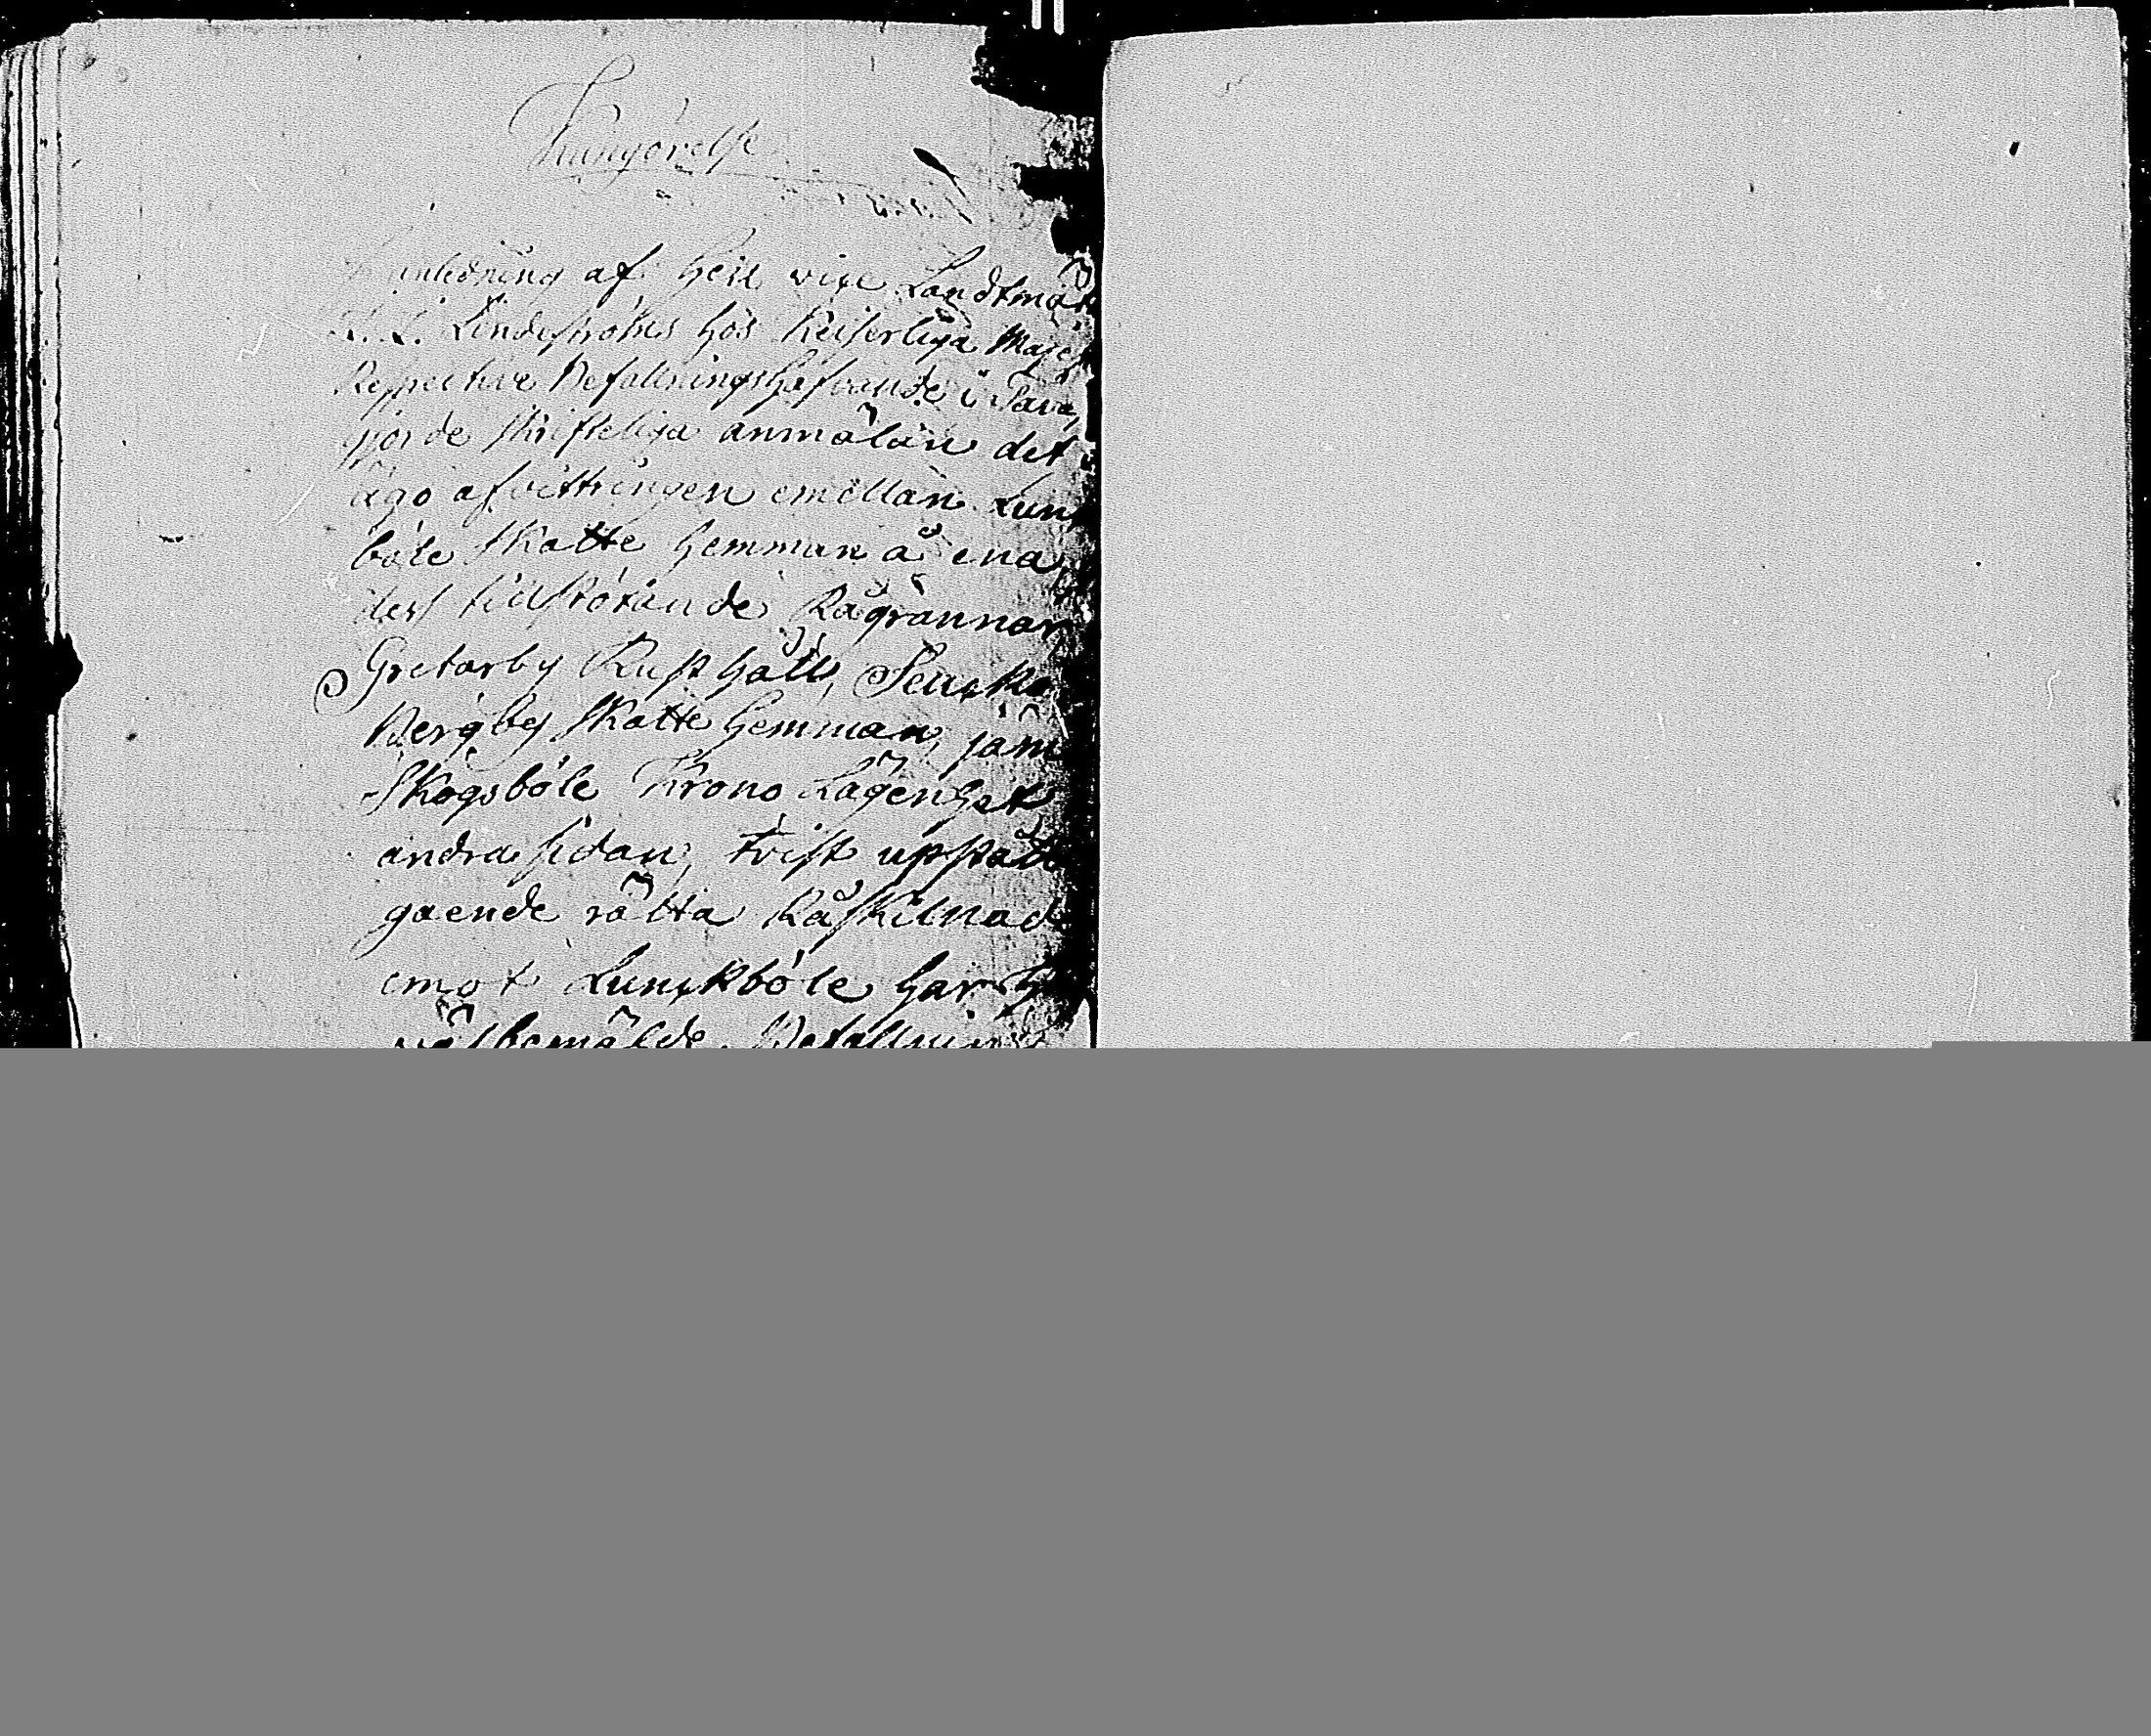 Kungörelse
anledning af Herr vice Landtmät
Lindeströms hos Keiserliga Maje
Respective Befallningshafvande i Tava
gjorde skrifteliga anmälan det
ägo afvittringen emellan Lun
böle skatte hemman å ena
dess tillstötande Rågrannar
Gretarby Rusthåll,
Bergby skatte hemman, jäm
Skogsböle Krono Lägenhet
andra sidan, tvist upstått
gående rätta Råskilnad
emot Lunckböle har
välbemälde Befallnin